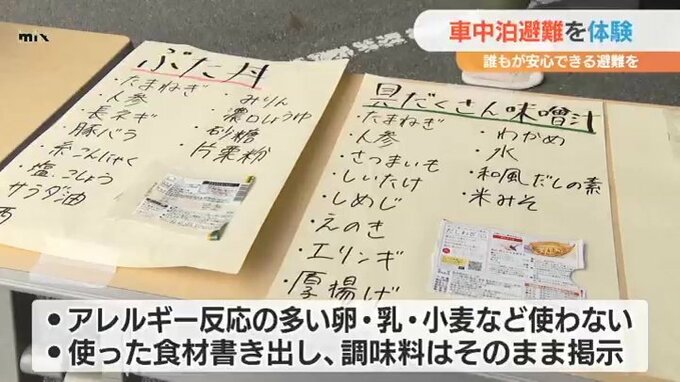 mix
車中泊避難を体験
誰もが安心できる避難を
ぶた丼
・たまねぎ
・人参
・長ネギ
・豚バラ
・糸こんにゃく
・塩こしょう
サラダ油
酒
・みりん
・濃口しょうゆ
・砂糖
・片栗粉
具だくさん味噌汁
・たまねぎ
・人参
・さつまいも
・しいたけ
・しめじ
・えのき
・エリンギ
・厚揚げ
・わかめ
・水
・和風だしの素
・米みそ
・アレルギー反応の多い卵・乳・小麦など使わない
・使った食材書き出し、調味料はそのまま掲示